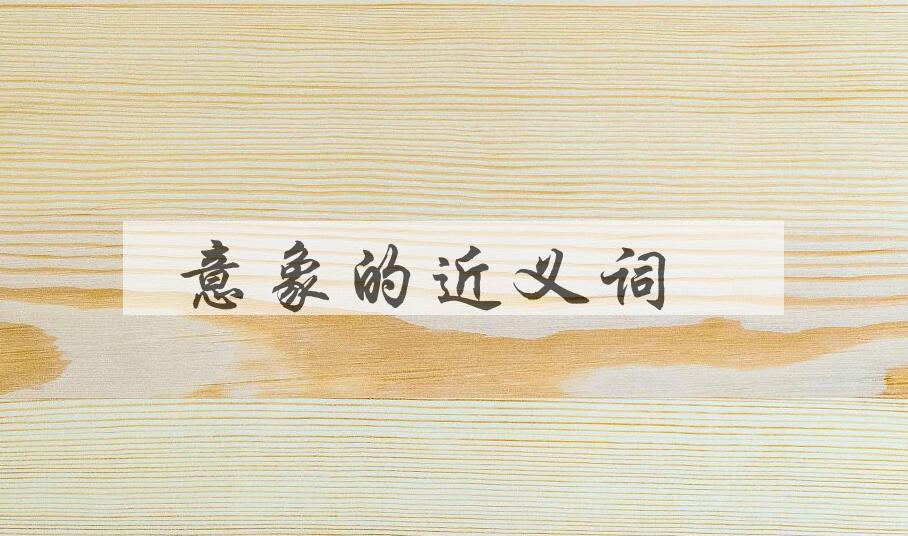 意象的近义词